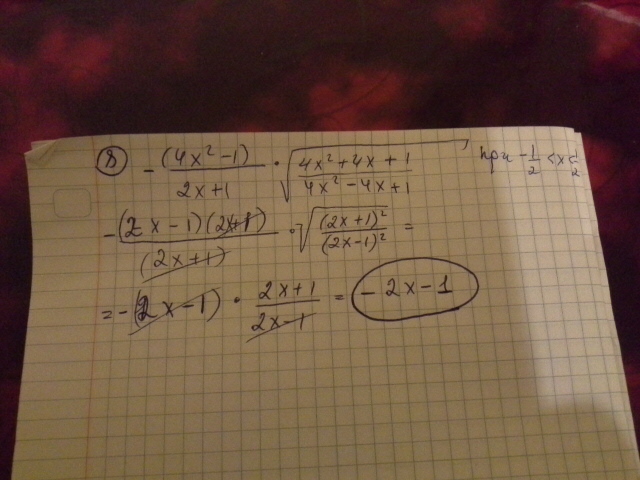 8 -(4x²-1)/(2x+1) · √((4x²+4x+1)/(4x²-4x+1)), при -1/2 <x<
-(2x-1)(2x+1)/(2x+1) · √((2x+1)²/(2x-1)²) =
= -(2x-1) · (2x+1)/(2x-1) = -2x-1